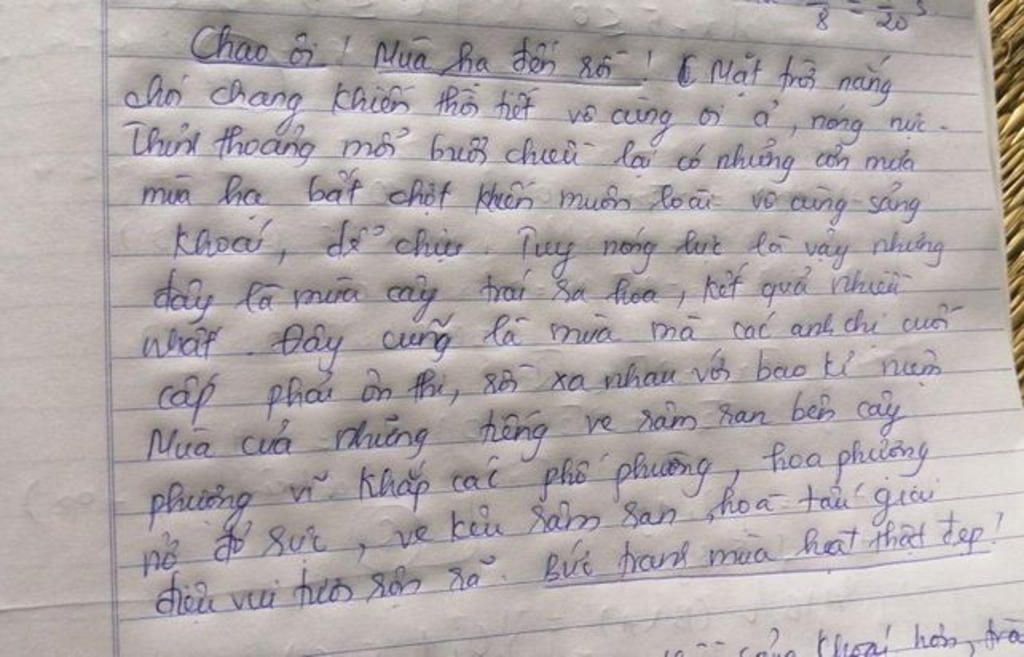 8 = 20 s
Chao ôi ! Mùa hạ đến rồi ! Mặt trời nắng
chói chang khiến thời tiết vô cùng oi ả, nóng nực.
Thỉnh thoảng mỗi buổi chiều lại có những cơn mưa
mùa hạ bất chợt khiến muôn loài vô cùng sảng
khoái, dễ chịu. Tuy nóng lực là vậy nhưng
đây là mùa cây trái ra hoa, kết quả nhiều
nhất. Đây cũng là mùa mà các anh chị cuối
cấp phải ôn thi, rồi xa nhau với bao kỉ niệm
Mùa của những tiếng ve râm ran bên cây
phượng vĩ. Khắp các phố phường, hoa phượng
nở đỏ rực, ve kêu râm ran, hoà tấu giai
điệu vui tươi rộn rã. Bức tranh mùa hạ thật đẹp!
khoái hơn, trà